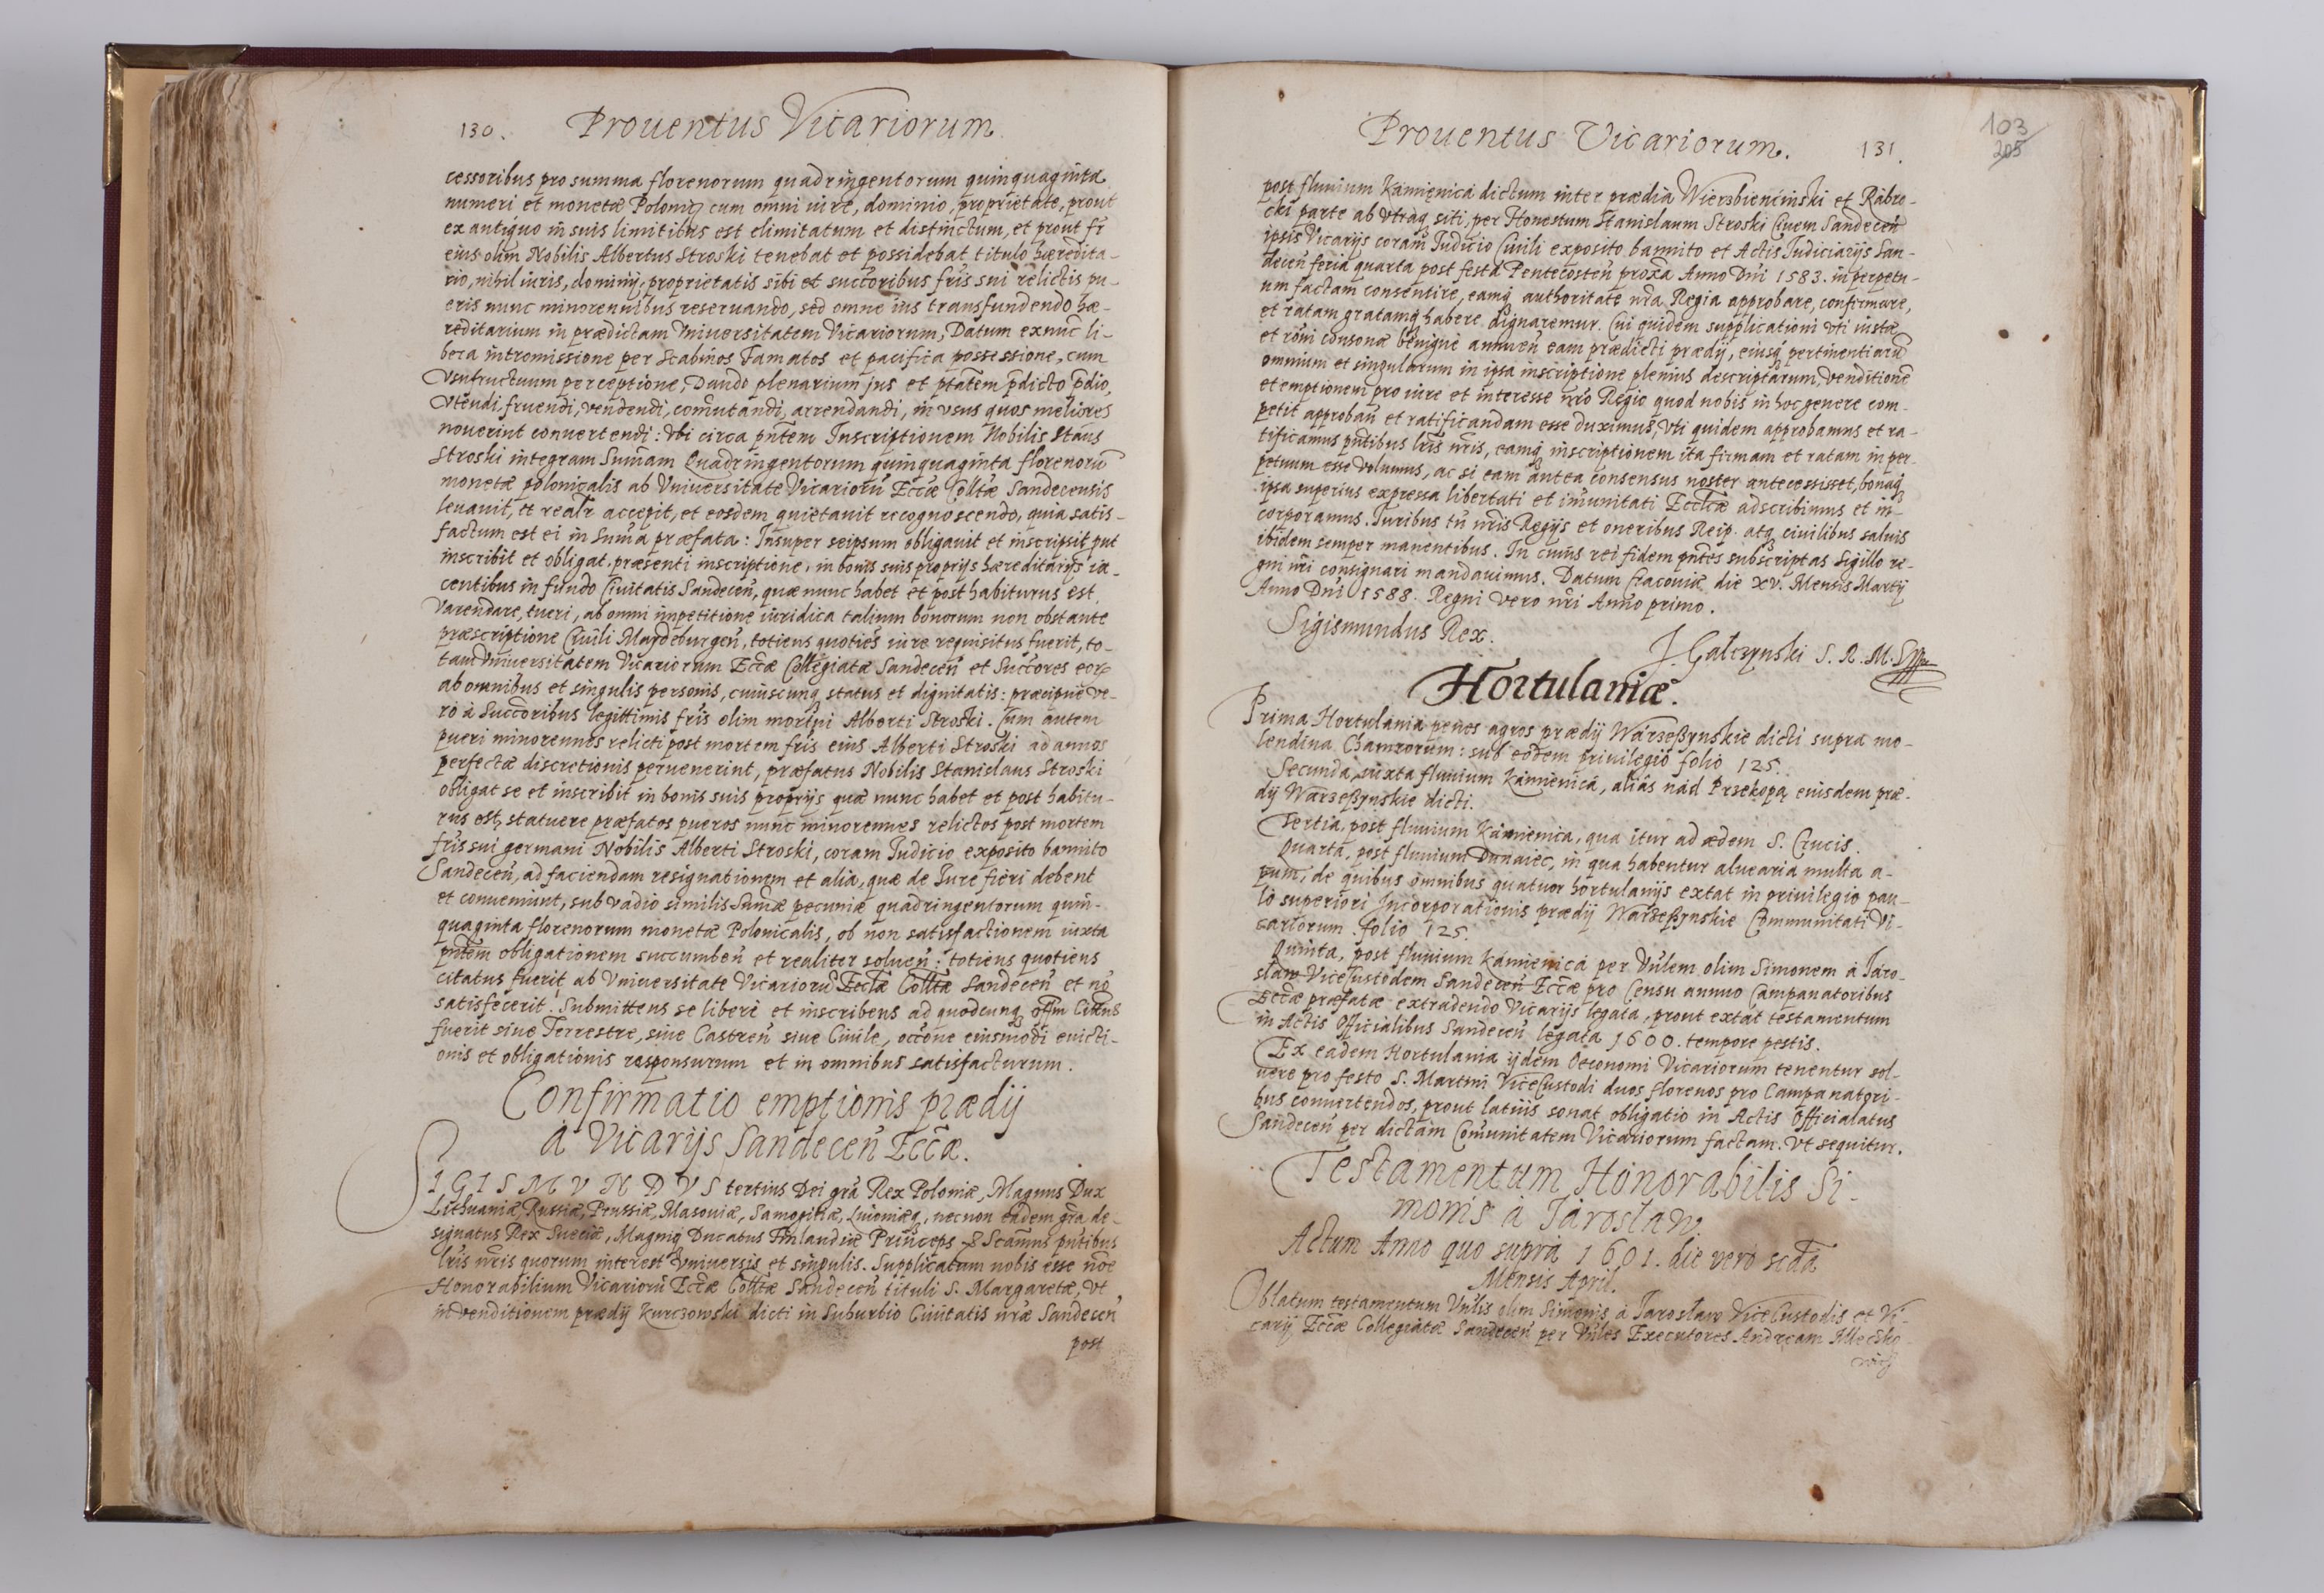 130. Prouentus Vicariorum.
cessoribus pro summa florenorum quadringentorum quinquaginta
numeri et monetæ Polonię cum omni iure, dominio, proprietate, prout
ex antiquo in suis limitibus est elimitatum et distinctum, et prout fr̃
eius olim Nobilis Albertus Stroski tenebat et possidebat titulo hæredita-
rio, nihil iuris, dominij, proprietatis sibi et succoribus fr̃is sui relictis pu-
eris nunc minorennibus reseruando, sed omne ius transfundendo hæ-
reditarium in prædictam Vniuersitatem Vicariorum, Datum exnunc li-
bera intromissione per Scabinos Famatos et pacifica possessione, cum
Vsufructuum perceptione, Dando plenarium jus et ptãtem p̃dicto p̃dio,
Vtendi, fruendi, vendendi, com̃utandi, arrendandi, in vsus quos meliores
nouerint conuertendi: Vbi circa pñtem Inscriptionem Nobilis Stãus
Stroski integram Sum̃am Quadringentorum quinquaginta florenorũ
monetæ polonicalis ab Vniuersitate Vicariorũ Eccæ Colltæ Sandecensis
leuauit, et realr̃ accepit, et eosdem quietauit recognoscendo, quia satis-
factum est ei in Sum̃a præfata: Insuper seipsum obligauit et inscripsit, put
inscribit et obligat præsenti inscriptione, in bonis suis proprijs hæreditarijs ia-
centibus in fundo Ciuitatis Sandeceñ, quæ nunc habet et post habiturus est,
Varendare, tueri, ab omni impetitione iuridica talium bonorum non obstante
præscriptione Ciuili Maydeburgeñ, totiens quoties iure requisitus fuerit, to-
tam Vniuersitatem Vicariorum Eccæ Collegiatæ Sandeceñ et Succores eorꝝ
ab omnibus et singulis personis, cuiuscunq̨ status et dignitatis: præcipuè ve-
rò à Succoribus legittimis fr̃is olim mortui Alberti Stroski. Cum autem
pueri minorennes relicti post mortem fr̃is eius Alberti Stroski ad annos
perfectæ discretionis peruenerint, præfatus Nobilis Stanislaus Stroski
obligat se et inscribit in bonis suis proprijs quæ nunc habet et post habitu-
rus est, statuere præfatos pueros nunc minorennes relictos post mortem
fr̃is sui germani Nobilis Alberti Stroski, coram Iudicio exposito bannito
Sandeceñ, ad faciendam resignationem et alia, quæ de Iure fieri debent
et conueniunt, sub vadio similis Sum̃æ pecuniæ quadringentorum quin-
quaginta florenorum monetæ Polonicalis, ob non satisfactionem iuxta
pñtem obligationem succumbeñ et realiter solueñ: totiens quotiens
citatus fuerit ab Vniuersitate Vicariorũ Ecclæ Colltæ Sandeceñ et nõ
satisfecerit. Submittens se liberè et inscribens ad quodcunq̨ offm Citatus
fuerit siue Terrestre, siue Castreñ siue Ciuile, occõne eiusmodi euicti-
onis et obligationis responsurum et in omnibus satisfacturum.
Confirmatio emptionis prædij
à Vicarijs Sandeceñ Eccæ.
SIGISMVNDVS tertius Dei grã Rex Poloniæ, Magnus Dux
Lithuaniæ, Russiæ, Prussiæ, Masouiæ, Samogitiæ, Liuoniæq̨, necnon eadem grã de-
signatus Rex Sueciæ, Magniq̨ Ducatus Finlandiæ Princeps & Scamus pñtibus
lr̃is nr̃is quorum interest Vniuersis et singulis. Supplicatum nobis esse noẽ
Honorabilium Vicariorũ Eccæ Colltæ Sandeceñ tituli S. Margaretæ, Vt
in venditionem prædij Kurczowski dicti in Suburbio Ciuitatis nr̃æ Sandeceñ
post
Prouentus Vicariorum. 131.
103
205
post fluuium Kamięnica dictum inter prædia Wierzbiencinski et Rabro-
cki parte ab vtraq̨ siti, per Honestum Stanislaum Stroski Ciuem Sandeceñ
ipsis Vicarijs coram Iudicio Ciuili exposito bannito et Actis Iudiciarijs San-
deceñ feria quarta post festa Pentecosteñ proxã Anno Dñi 1583. in perpetu-
um factam consentire, eamq̨ authoritate nr̃a Regia approbare, confirmare,
et ratam gratamq̨ habere dignaremur. Cui quidem supplicationi vti iustæ
et rõni consonæ benignè annueñ eam prædicti prædij, eiusq̨ pertinentiarũ
omnium et singularum in ipsa inscriptione plenius descriptarum, venditionẽ
et emptionem pro iure et interesse nr̃o Regio quod nobis in hoc genere com-
petit approbañ et ratificandam esse duximus, vti quidem approbamus et ra-
tificamus pñtibus lr̃is nr̃is, eamq̨ inscriptionem ita firmam et ratam in per-
petuum esse volumus, ac si eam antea consensus noster antecessisset, bonaq̨
ipsa superius expressa libertati et im̃unitati Eccticæ adscribimus et in-
corporamus. Iuribus tñ nr̃is Regijs et oneribus Reip. atq̨ ciuilibus saluis
ibidem semper manentibus. In cuius rei fidem pñtes subscriptas Sigillo re-
gni nr̃i consignari mandauimus. Datum Cracouiæ die XV. Mensis Martij
Anno Dñi 1588. Regni vero nr̃i Anno primo.
Sigismundus Rex.
J. Galczynski S. R. M. S
Hortulaniæ.
Prima Hortulania penes agros prædij Warzeßynskie dicti supra mo-
lendina Chamrorum: sub eodem priuilegio folio 125.
Secunda, iuxta fluuium Kamienica, aliâs nád Przekopą eiusdem præ-
dij Warzeßynskie dicti.
Tertia, post fluuium Kamienica, qua itur ad ædem S. Crucis.
Quarta, post fluuium Dunaiec, in qua habentur aluearia multa a-
pum, de quibus omnibus quatuor hortulanijs extat in priuilegio pau-
lò superiori Incorporationis prædij Warzeßynskie Communitati Vi-
cariorum folio 125.
Quinta, post fluuium Kamienica per Vñlem olim Simonem à Iaro-
slaw ViceCustodem Sandeceñ Eccæ pro Censu annuo Campanatoribus
Eccæ præfatæ extradendo Vicarijs legata, prout extat testamentum
in Actis Officialibus Sandeceñ legata 1600. tempore pestis.
Ex eadem Hortulania ijdem Oeconomi Vicariorum tenentur sol-
uere pro festo S. Martini ViceCustodi duos florenos pro Campanatori-
bus conuertendos, prout latius sonat obligatio in Actis Officialatus
Sandeceñ per dictam Com̃unitatem Vicariorum factam. Vt sequitur.
Testamentum Honorabilis Si-
monis à Iaroslaw.
Actum Anno quo supra 1601. die verò scđa
Mensis April.
Oblatum testamentum Vñlis olim Simonis à Iaroslaw ViceCustodis et Vi-
carij Eccæ Collegiatæ Sandeceñ per Vñles Executores Andream Mlecsko